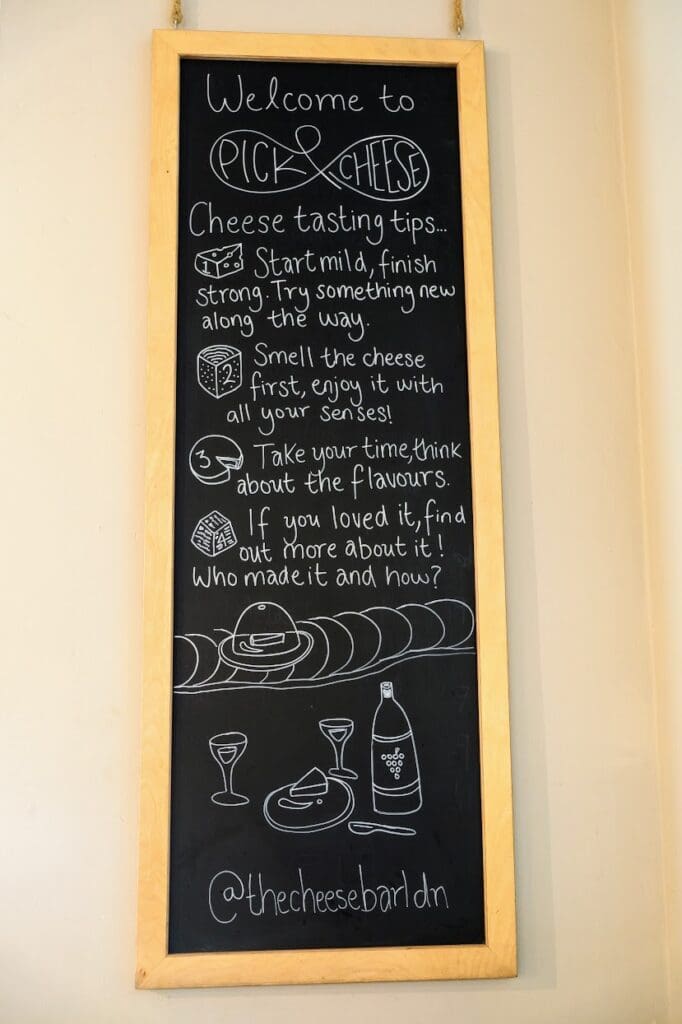 Welcome to
PICK & CHEESE
Cheese tasting tips...
1 Start mild, finish
strong. Try something new
along the way.
2 Smell the cheese
first, enjoy it with
all your senses!
3 Take your time, think
about the flavours.
4 If you loved it, find
out more about it!
Who made it and how?
@thecheesebarldn